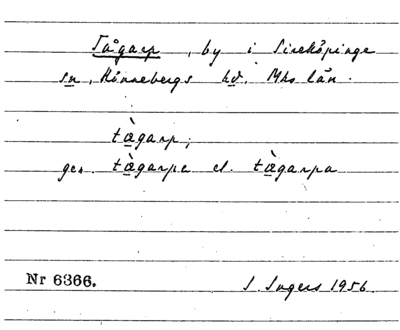 Tågarp, by i Sireköpinge
sn, Rönnebergs hd. Mhs län.
tàgarp;
gen. tàgarpa el. tàgarpa
Nr 6366.
I. Ingers 1956